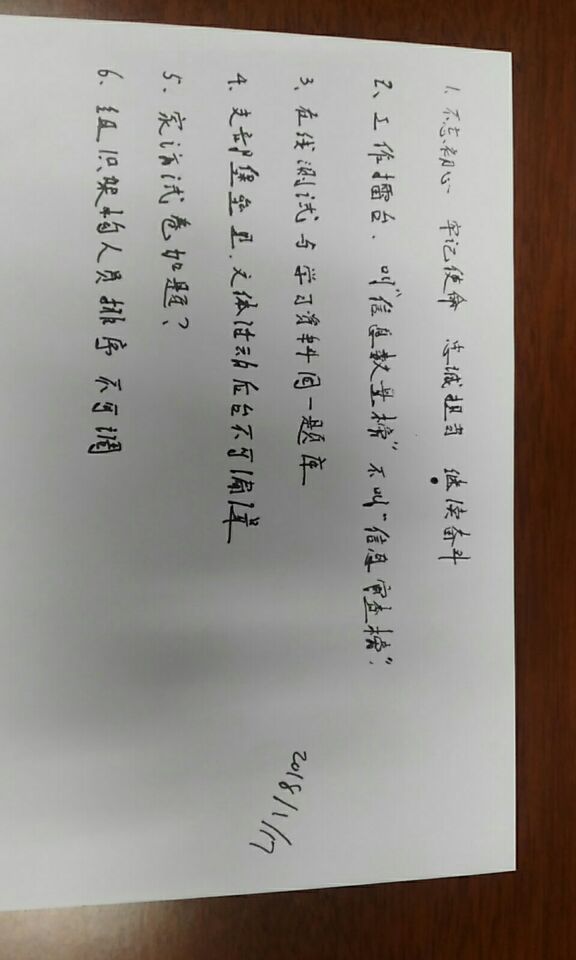 1、不忘初心 牢记使命 忠诚担当 继续奋斗
2、工作擂台、叫“信息数量榜”不叫“信息审查榜”.
3、在线测试与学习资料同一题库
4、支部堡垒里、文体活动后台不可编辑
5、家访试卷加题?
6、组织架构人员排序不可调
2018/1/17